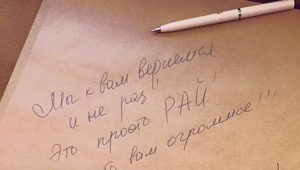 Мы к вам вернемся
и не раз!
Это просто РАЙ!
вам огромное!!!